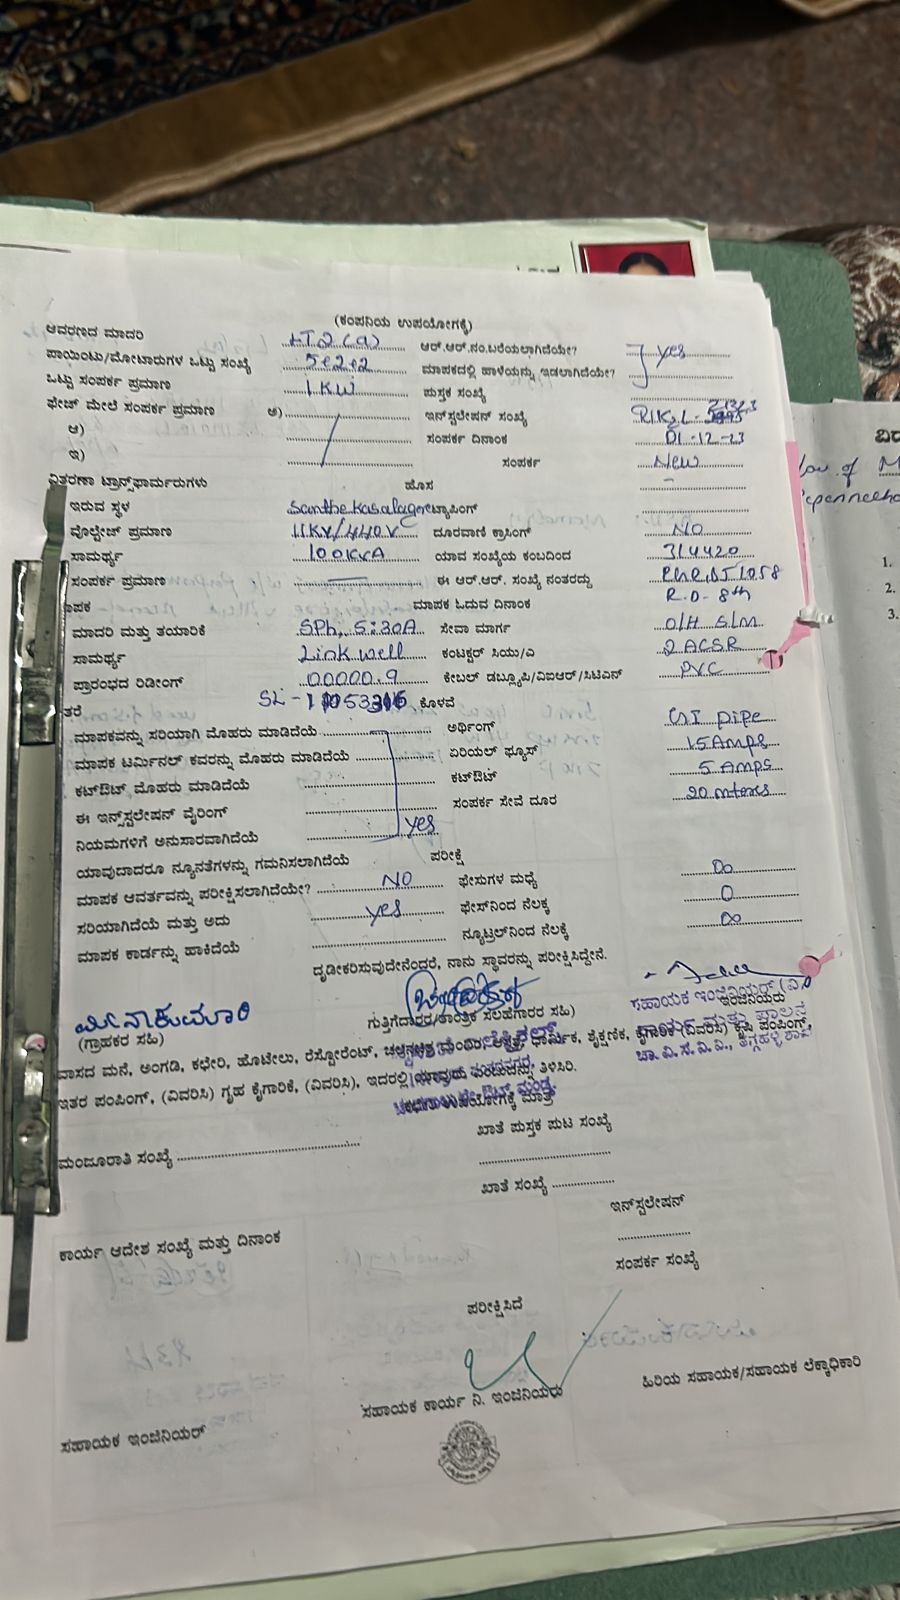 (ಕಂಪನಿಯ ಉಪಯೋಗಕ್ಕೆ)
ಆವರಣದ ಮಾದರಿ LT2(a) ಆರ್.ಆರ್.ನಂ.ಬರೆಯಲಾಗಿದೆಯೇ? yes
ಪಾಯಿಂಟು/ಮೋಟಾರುಗಳ ಒಟ್ಟು ಸಂಖ್ಯೆ 5+2+2 ಮಾಪಕದಲ್ಲಿ ಹಾಳೆಯನ್ನು ಇಡಲಾಗಿದೆಯೇ?
ಒಟ್ಟು ಸಂಪರ್ಕ ಪ್ರಮಾಣ 1KW ಪುಸ್ತಕ ಸಂಖ್ಯೆ
ಫೇಜ್ ಮೇಲೆ ಸಂಪರ್ಕ ಪ್ರಮಾಣ ಅ) ಇನ್‌ಸ್ಟಲೇಷನ್ ಸಂಖ್ಯೆ
ಆ) ಸಂಪರ್ಕ ದಿನಾಂಕ 01-12-23
ಇ) ಸಂಪರ್ಕ New
ವಿತರಣಾ ಟ್ರಾನ್ಸ್‌ಫಾರ್ಮರುಗಳು ಹೊಸ
ಇರುವ ಸ್ಥಳ ಟ್ಯಾಪಿಂಗ್
ವೊಲ್ಟೇಜ್ ಪ್ರಮಾಣ 11KV/440V ದೂರವಾಣಿ ಕ್ರಾಸಿಂಗ್ NO
ಸಾಮರ್ಥ್ಯ 100KVA ಯಾವ ಸಂಖ್ಯೆಯ ಕಂಬದಿಂದ 314420
ಸಂಪರ್ಕ ಪ್ರಮಾಣ ಈ ಆರ್.ಆರ್. ಸಂಖ್ಯೆ ನಂತರದ್ದು
ಮಾಪಕ ಓದುವ ದಿನಾಂಕ R.D-8th
ಮಾದರಿ ಮತ್ತು ತಯಾರಿಕೆ SPh, 5-30A ಸೇವಾ ಮಾರ್ಗ O/H S/m
ಸಾಮರ್ಥ್ಯ Linkwell ಕಂಟಕ್ಟರ್ ಸಿಯು/ಎ 2 ACSR
ಪ್ರಾರಂಭದ ರಿಡಿಂಗ್ 00000.9 ಕೇಬಲ್ ಡಬ್ಲ್ಯೂಪಿ/ವಿಐಆರ್/ಸಿಟಿಎಸ್ PVC
ಕೊಳವೆ
ಮಾಪಕವನ್ನು ಸರಿಯಾಗಿ ಮೊಹರು ಮಾಡಿದೆಯೆ ಅರ್ಥಿಂಗ್ GI pipe
ಮಾಪಕ ಟರ್ಮಿನಲ್ ಕವರನ್ನು ಮೊಹರು ಮಾಡಿದೆಯೆ ಏರಿಯಲ್ ಫ್ಯೂಸ್ 15 Amps
ಕಟ್‌ಔಟ್ ಮೊಹರು ಮಾಡಿದೆಯೆ ಕಟ್‌ಔಟ್ 5 Amps
ಈ ಇನ್ಸ್‌ಸ್ಟಲೇಷನ್ ವೈರಿಂಗ್ ಸಂಪರ್ಕ ಸೇವೆ ದೂರ 20 mters
ನಿಯಮಗಳಿಗೆ ಅನುಸಾರವಾಗಿದೆಯೆ yes
ಯಾವುದಾದರೂ ನ್ಯೂನತೆಗಳನ್ನು ಗಮನಿಸಲಾಗಿದೆಯೆ ಪರೀಕ್ಷೆ
ಮಾಪಕ ಆವರ್ತವನ್ನು ಪರೀಕ್ಷಿಸಲಾಗಿದೆಯೇ? NO ಫೇಸುಗಳ ಮಧ್ಯೆ ∞
ಸರಿಯಾಗಿದೆಯೆ ಮತ್ತು ಅದು yes ಫೇಸ್‌ನಿಂದ ನೆಲಕ್ಕೆ 0
ಮಾಪಕ ಕಾರ್ಡನ್ನು ಹಾಕಿದೆಯೆ ನ್ಯೂಟ್ರಲ್‌ನಿಂದ ನೆಲಕ್ಕೆ ∞
ದೃಢೀಕರಿಸುವುದೇನೆಂದರೆ, ನಾನು ಸ್ಥಾವರನ್ನು ಪರೀಕ್ಷಿಸಿದ್ದೇನೆ.
ಮೀನಾಕುಮಾರಿ
(ಗ್ರಾಹಕರ ಸಹಿ) ಗುತ್ತಿಗೆದಾರರ/ತಾಂತ್ರಿಕ ಸಲಹೆಗಾರರ ಸಹಿ) ಇಂಜಿನಿಯರು
ಸಹಾಯಕ ಇಂಜಿನಿಯರ್ (ವಿ)
ವಾಸದ ಮನೆ, ಅಂಗಡಿ, ಕಛೇರಿ, ಹೊಟೇಲು, ರೆಸ್ಟೋರೆಂಟ್, ಚಲನಚಿತ್ರ ಮಂದಿರ, ಆಸ್ಪತ್ರೆ, ಧಾರ್ಮಿಕ, ಶೈಕ್ಷಣಿಕ, ಕೈಗಾರಿಕೆ (ವಿವರಿಸಿ) ಕೃಷಿ ಪಂಪಿಂಗ್,
ಇತರ ಪಂಪಿಂಗ್, (ವಿವರಿಸಿ) ಗೃಹ ಕೈಗಾರಿಕೆ, (ವಿವರಿಸಿ), ಇದರಲ್ಲಿ ಯಾವುದು ಎಂಬುದನ್ನು ತಿಳಿಸಿರಿ.
ಕಛೇರಿ ಉಪಯೋಗಕ್ಕೆ ಮಾತ್ರ
ಮಂಜೂರಾತಿ ಸಂಖ್ಯೆ ಖಾತೆ ಪುಸ್ತಕ ಪುಟ ಸಂಖ್ಯೆ
ಖಾತೆ ಸಂಖ್ಯೆ
ಕಾರ್ಯ ಆದೇಶ ಸಂಖ್ಯೆ ಮತ್ತು ದಿನಾಂಕ ಇನ್‌ಸ್ಟಲೇಷನ್
ಸಂಪರ್ಕ ಸಂಖ್ಯೆ
ಪರೀಕ್ಷಿಸಿದೆ
ಸಹಾಯಕ ಇಂಜಿನಿಯರ್ ಸಹಾಯಕ ಕಾರ್ಯ ನಿ. ಇಂಜಿನಿಯರು ಹಿರಿಯ ಸಹಾಯಕ/ಸಹಾಯಕ ಲೆಕ್ಕಾಧಿಕಾರಿ
1.
2.
3.